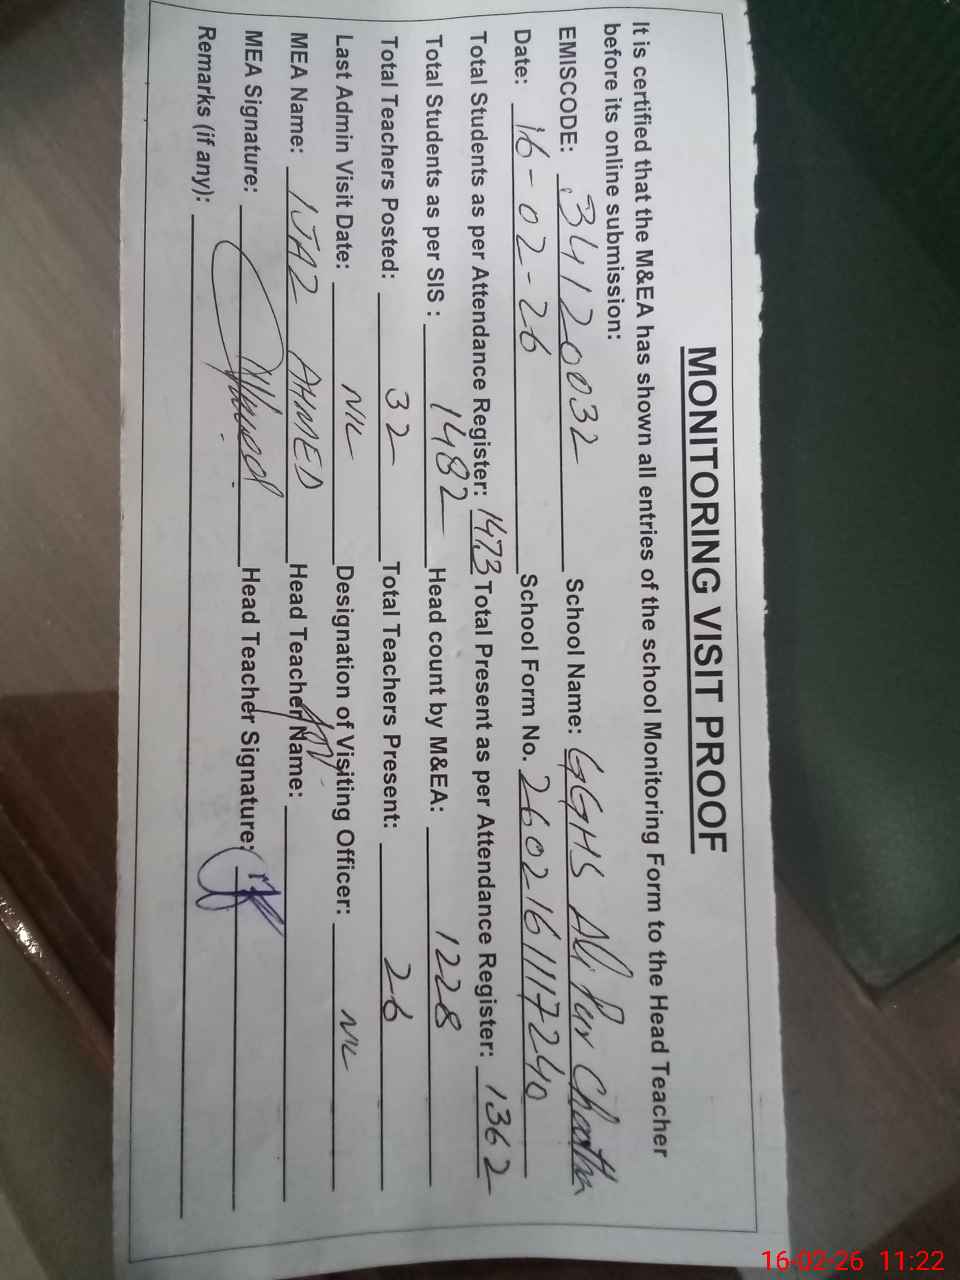 MONITORING VISIT PROOF
It is certified that the M&EA has shown all entries of the school Monitoring Form to the Head Teacher
before its online submission:
EMISCODE: 34120032 School Name: GGHS Ali Pur Chatha
Date: 16-02-26 School Form No. 2602161117240
Total Students as per Attendance Register: 1473 Total Present as per Attendance Register: 1362
Total Students as per SIS : 1482 Head count by M&EA: 1228
Total Teachers Posted: 32 Total Teachers Present: 26
Last Admin Visit Date: NIL Designation of Visiting Officer: NIL
MEA Name: IJAZ AHMED Head Teacher Name:
MEA Signature: Head Teacher Signature:
Remarks (if any):
16-02-26 11:22